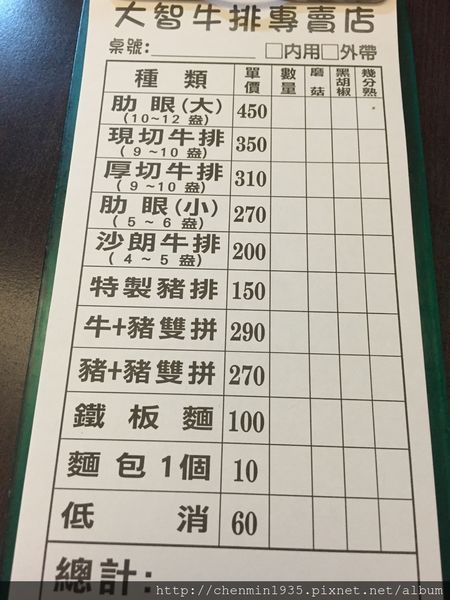 大智牛排專賣店
桌號: □內用□外帶
種 類 單價 數量 磨菇 黑胡椒 幾分熟
肋 眼(大) 450
(10~12 盎)
現切牛排 350
( 9 ~10 盎)
厚切牛排 310
( 9 ~10 盎)
肋 眼(小) 270
( 5 ~ 6 盎)
沙朗牛排 200
( 4 ~ 5 盎)
特製豬排 150
牛+豬雙拼 290
豬+豬雙拼 270
鐵 板 麵 100
麵 包 1 個 10
低 消 60
總計:
http://chenmin1935.pixnet.net/album